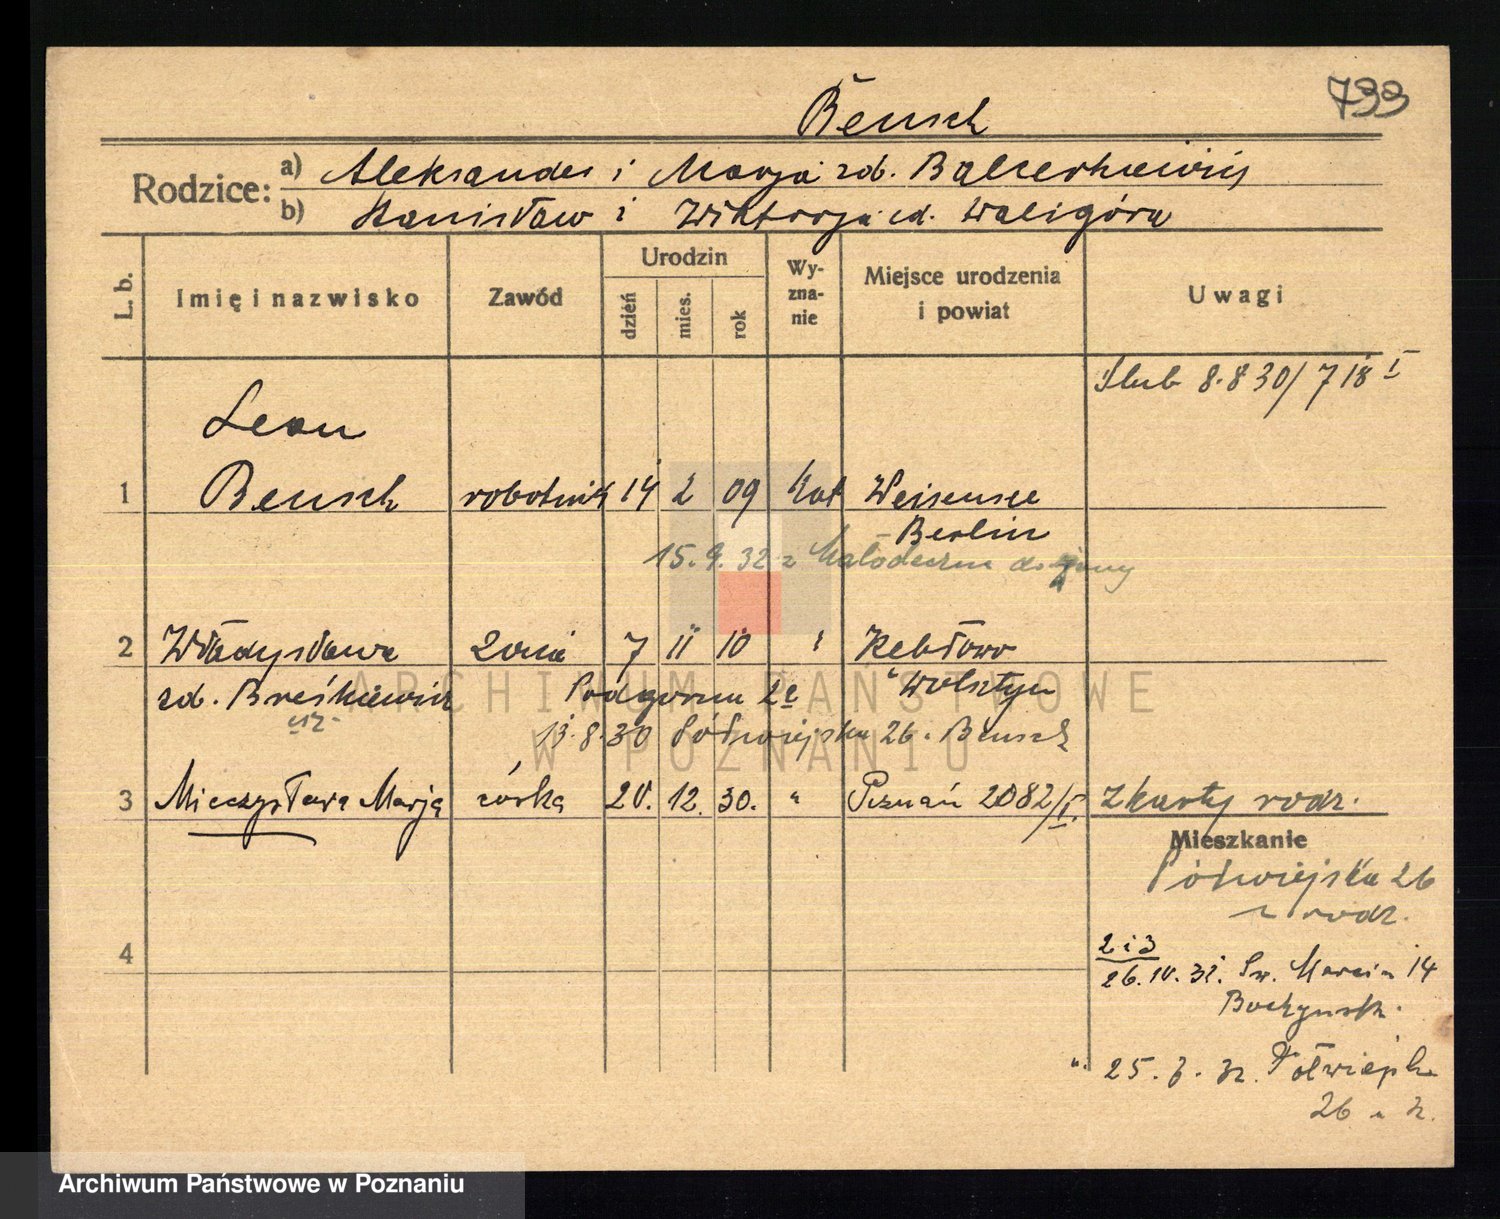 733
Beusch
Rodzice:
a) Aleksander i Marja zd. Balcerkiewicz
b) Stanisław i Wiktorja zd. Waligóra
L. b.
Imię i nazwisko
Zawód
Urodzin
dzień
mies.
rok
Wy-
zna-
nie
Miejsce urodzenia
i powiat
Uwagi
Ślub 8.8 30/718 I
Leon
1 Beusch robotnik 14 2 09 kat Weisensee
Berlin
15.9.32 z
2 Władysława żona 7 11 10 " Rebłowo
zd. Breśkiewicz Podgórna Wolsztyn
13.8.30 Półwiejska 26. Beusch
3 Mieczysława Marja córka 20. 12. 30. " Poznań 2082/I. z karty rodz.
Mieszkanie
Półwiejska 26
u rodz.
4
2 i 3
26. IV. 32. Św. Marcin 14
25. 32. Półwiejska
26
ARCHIWUM PAŃSTWOWE
W POZNANIU
Archiwum Państwowe w Poznaniu